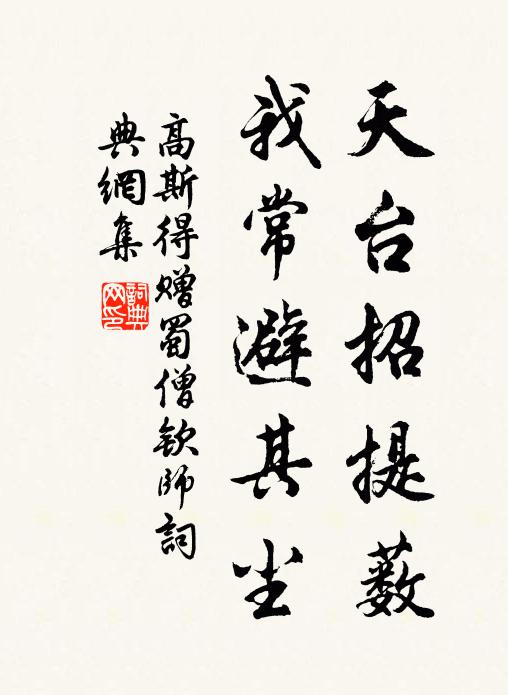 天台招提薮
我常避其尘
高斯得赠蜀僧钦师詞
典網集
詞典網印